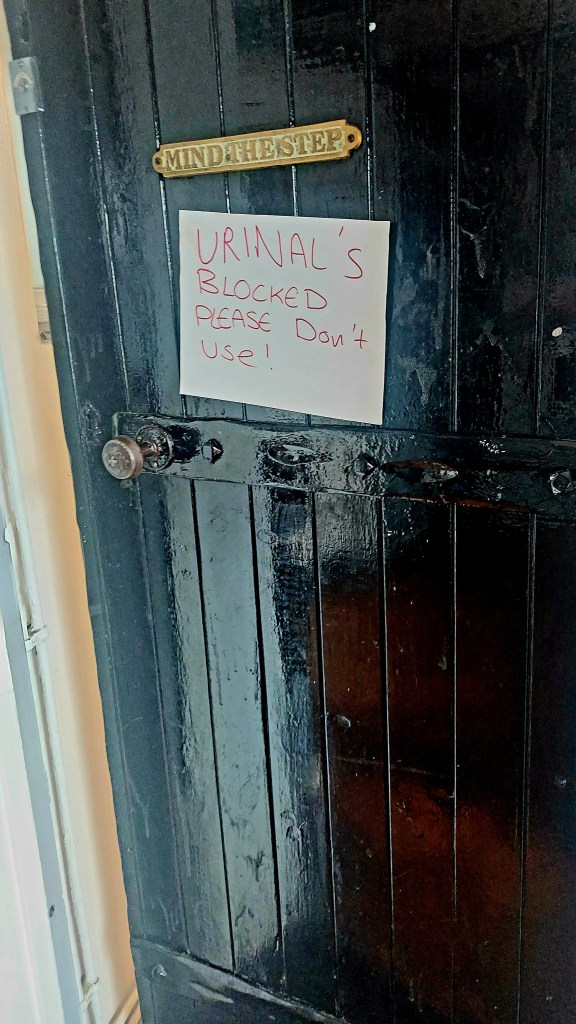 MIND THE STEP
URINAL'S
BLOCKED
PLEASE Don't
use!